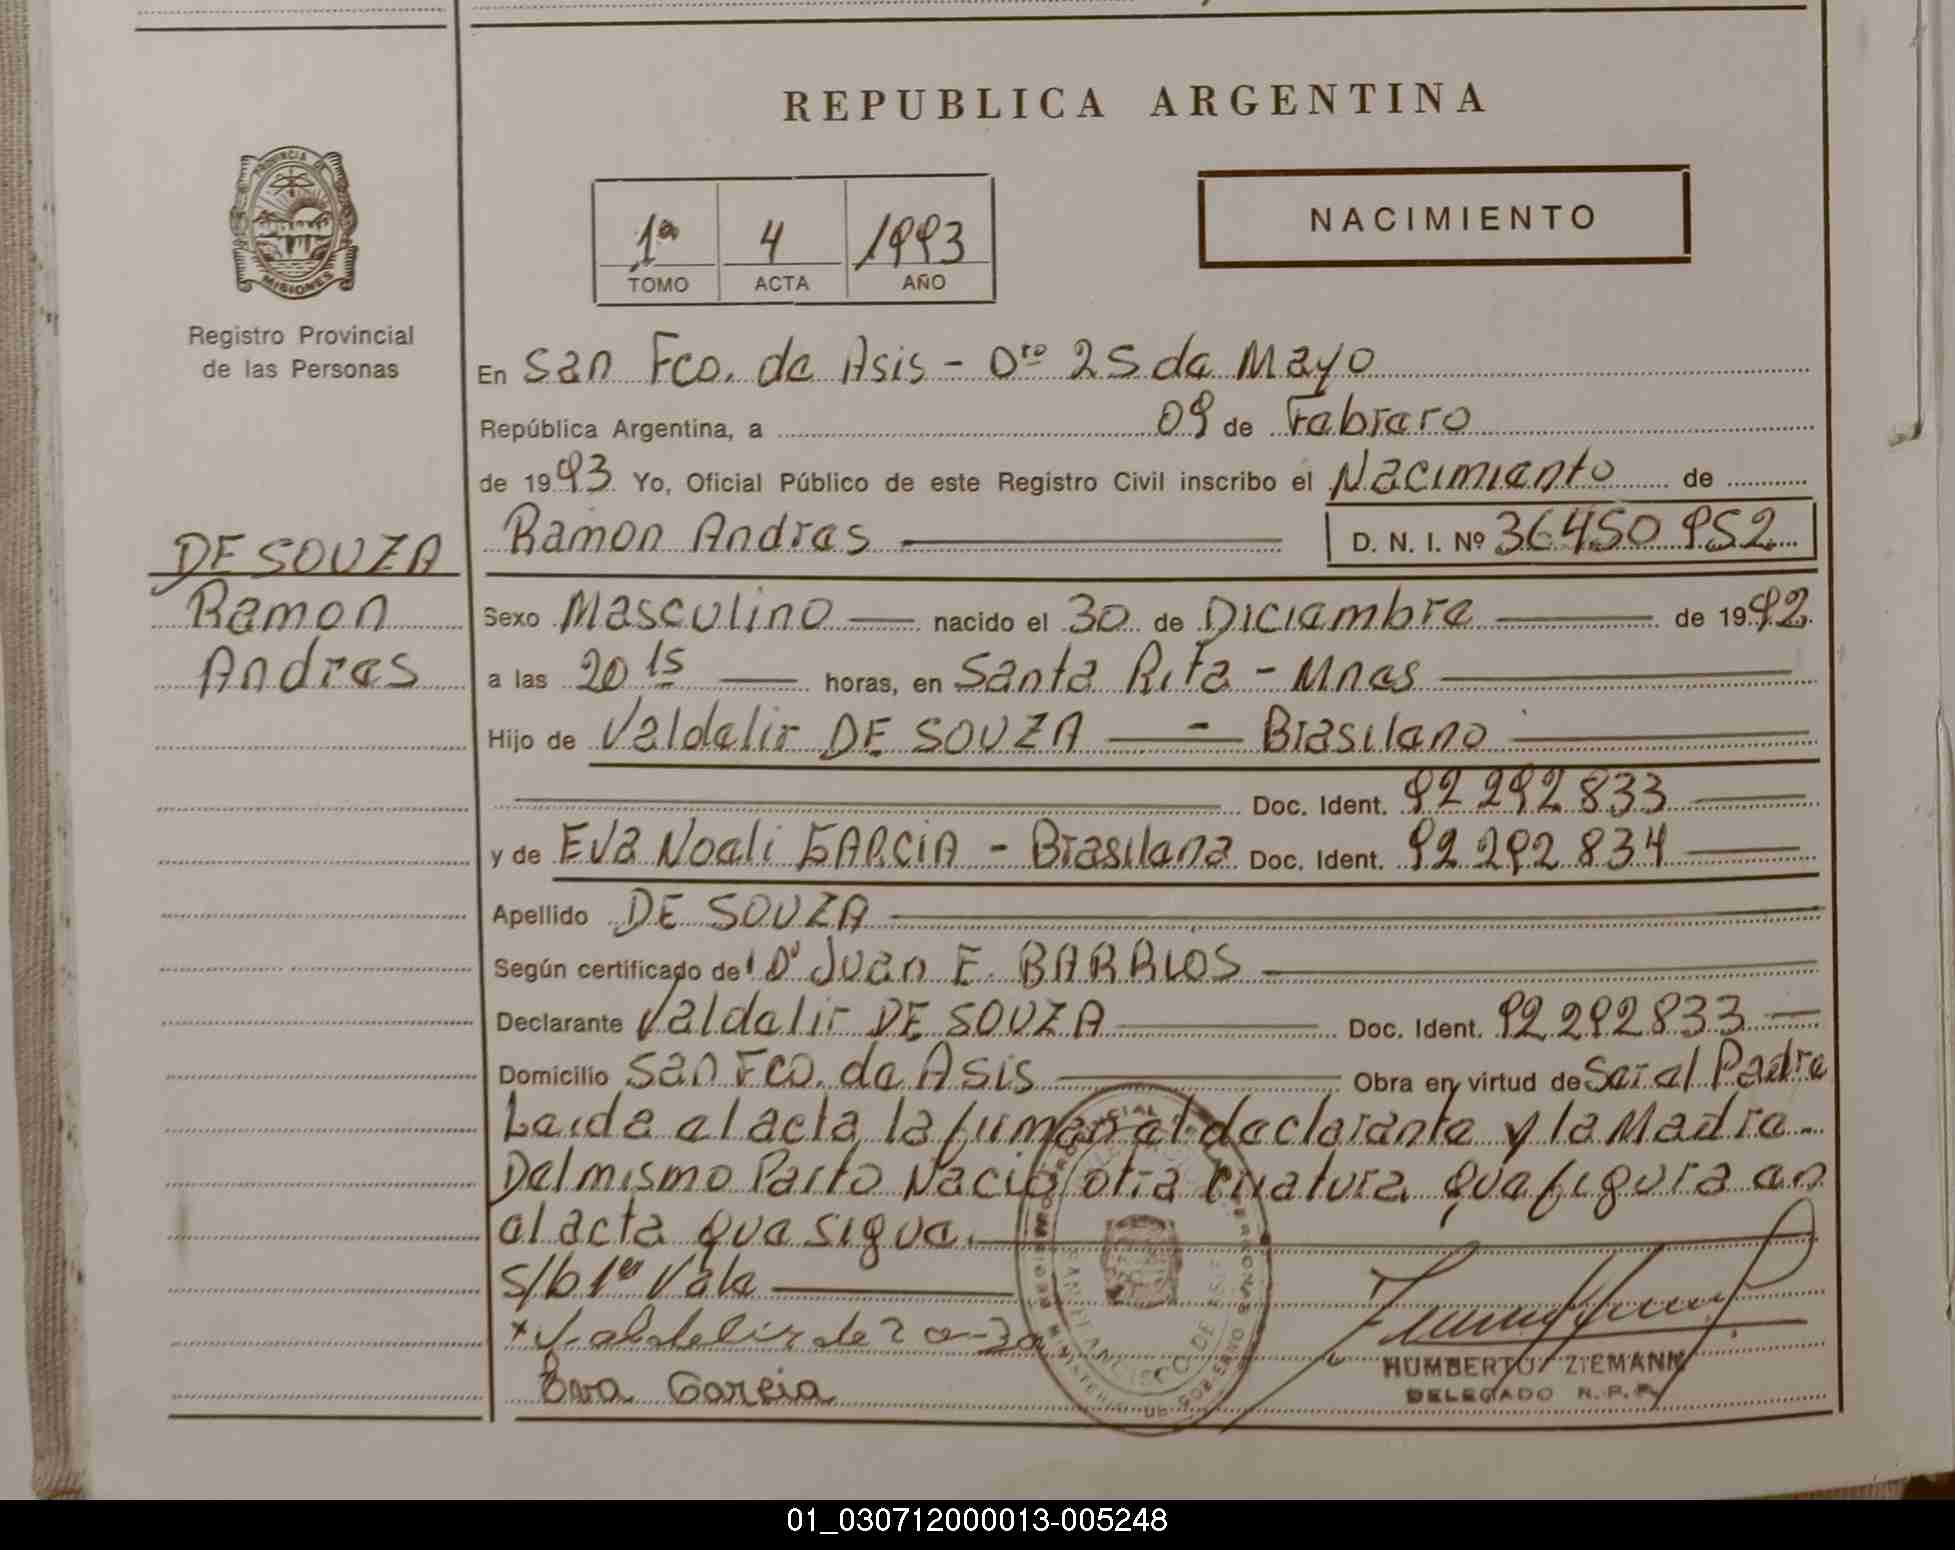 REPUBLICA ARGENTINA
PROVINCIA DE
MISIONES
Registro Provincial
de las Personas
1ª 4 1993
TOMO ACTA AÑO
NACIMIENTO
En San Fco. de Asis - Dto 25 de Mayo
República Argentina, a 09 de Febrero
de 1993 Yo, Oficial Público de este Registro Civil inscribo el Nacimiento de
DE SOUZA
Ramon
Andres
Ramon Andres D. N. I. Nº 36450952
Sexo Masculino nacido el 30 de Diciembre de 1992
a las 20 15 horas, en Santa Rita - Mnes
Hijo de Valdelir DE SOUZA - Brasileno
Doc. Ident. 92 292 833
y de Eva Noeli GARCIA - Brasilena Doc. Ident. 92 292 834
Apellido DE SOUZA
Según certificado de Dr Juan E. BARRIOS
Declarante Valdelir DE SOUZA Doc. Ident. 92 292 833
Domicilio San Fco. de Asis Obra en virtud de Ser el Padre
Leida el acta, la firman el declarante y la Madre.
Del mismo Parto Nacio otra criatura que figura en
el acta que sigue.
s/b 1ª Vale
Eva Garcia
HUMBERTO ZIEMANN
DELEGADO R.P.P.
01_030712000013-005248